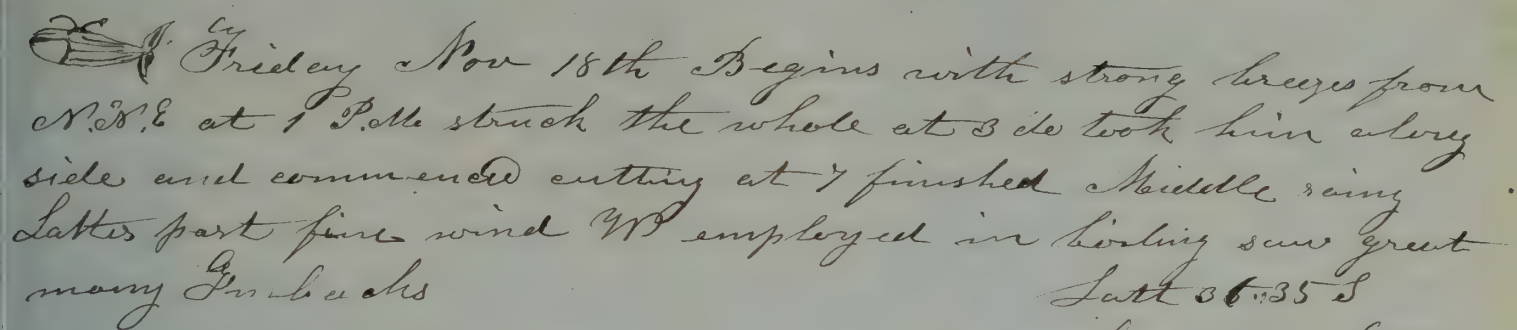 Friday Nov 18th Begins with strong breezes from
N.N.E at 1 P.M. struck the whale at 3 do took him along
side and commenced cutting at 7 finished Middle rainy
Latter part fine wind employed in boiling saw great
many Finbacks Latt 36:35 S